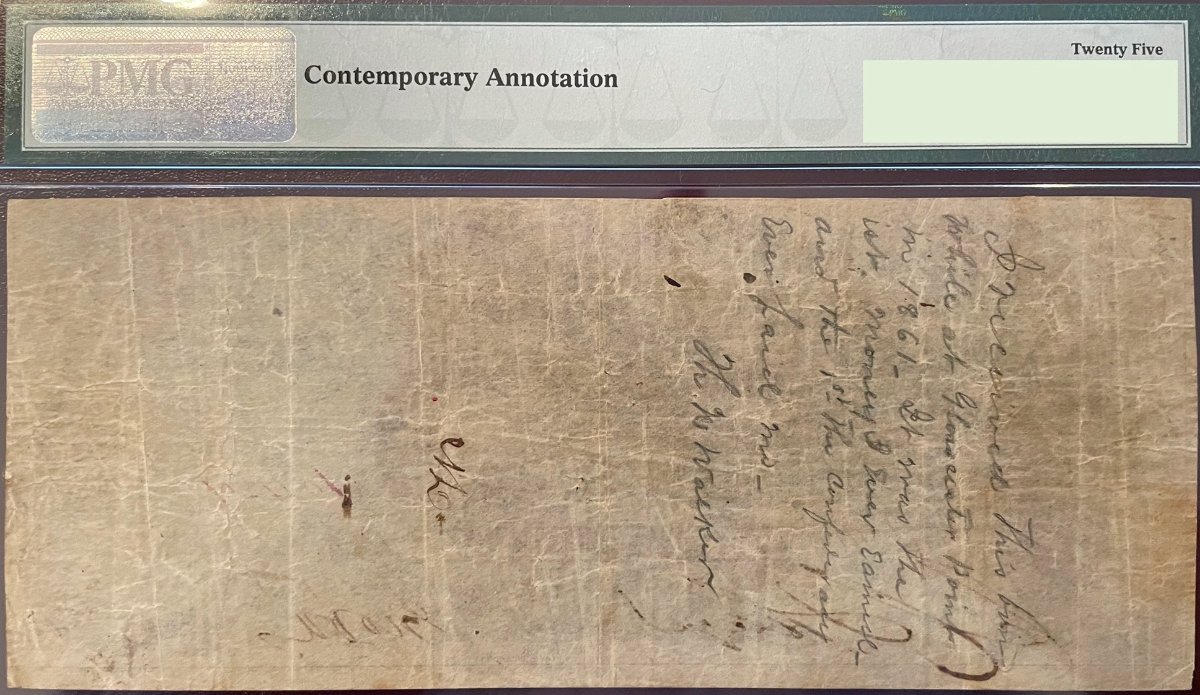 PMG
Contemporary Annotation
Twenty Five
I received this bill
while at Gloucester Point
in 1861 - It was the
1st. money I Ever Earned -
and the 1st the Confederacy
Ever paid me -
Th. W Walker